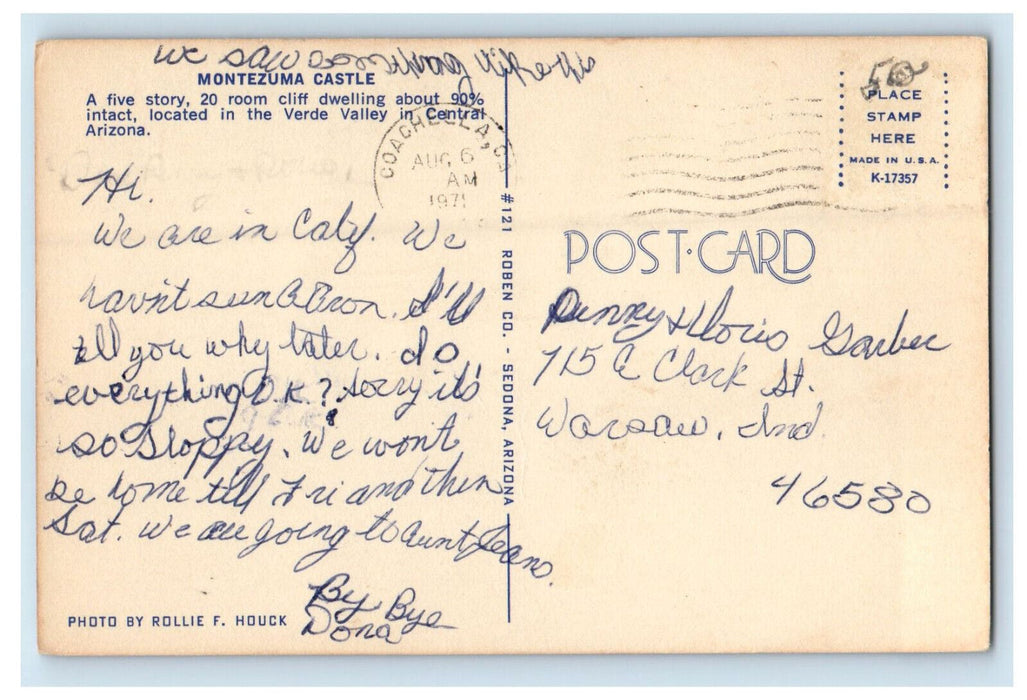 we saw something like this
MONTEZUMA CASTLE
A five story, 20 room cliff dwelling about 90%
intact, located in the Verde Valley in Central
Arizona.
COACHELLA, C
AUG 6
AM
1971
PLACE
STAMP
HERE
MADE IN U.S.A.
K-17357
Hi.
We are in Calif. We
havn't seen . I'll
tell you why later. do
everything O.K.? Sorry it's
so sloppy. We wont
be home till Fri and then
Sat. we are going to Aunt Jeans.
By Bye
Dona
PHOTO BY ROLLIE F. HOUCK
#121 ROBEN CO. - SEDONA, ARIZONA
POST-CARD
Denny & Doris Garber
715 E Clark St.
Warsaw, Ind.
46580